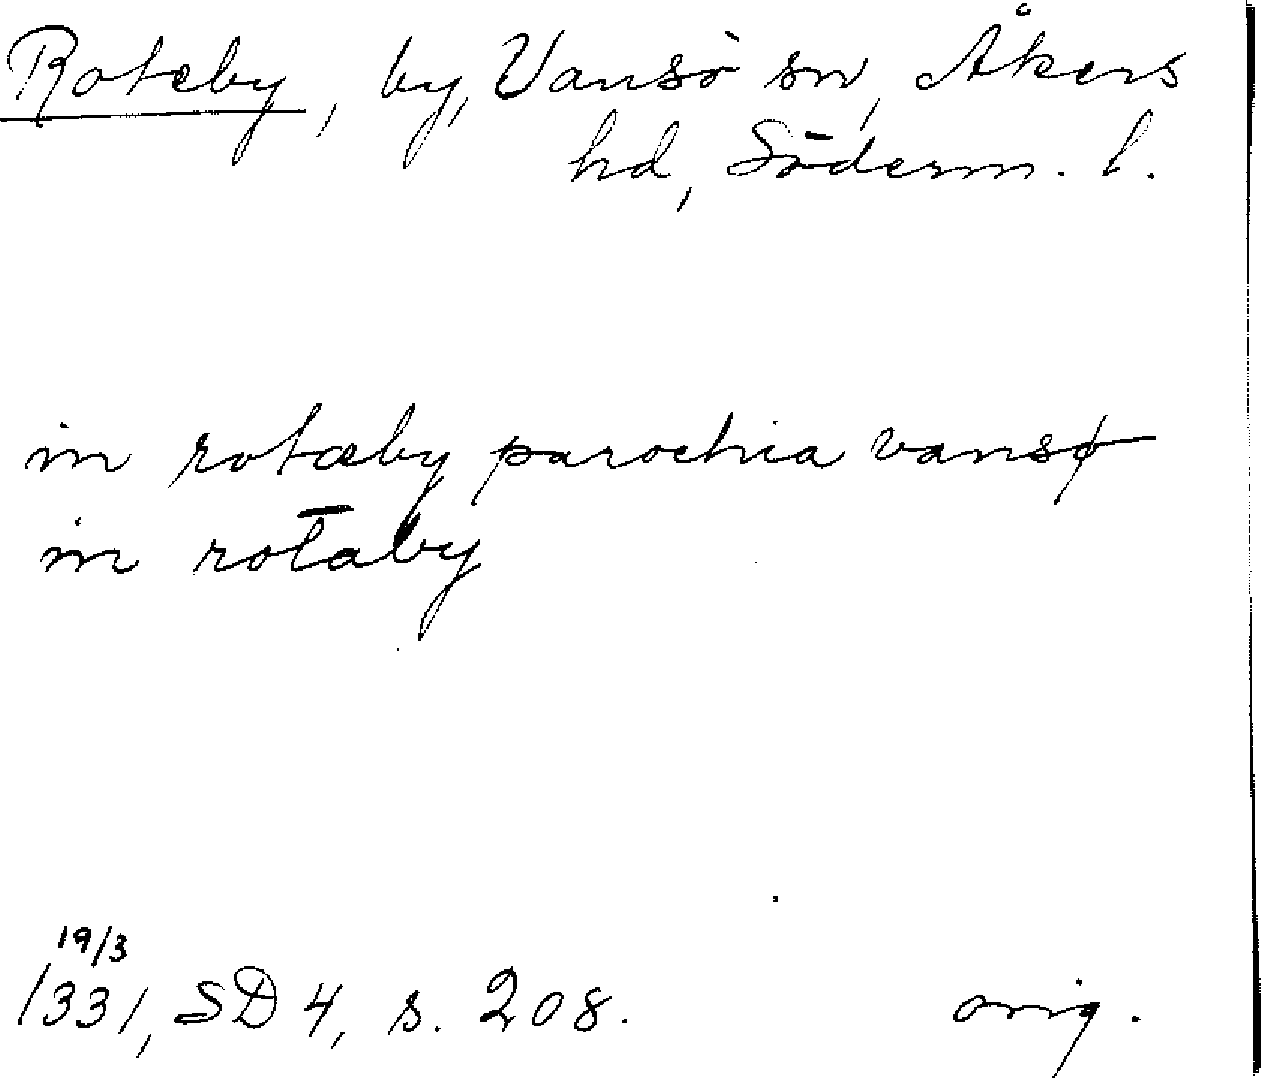 Roteby, by, Vansö sn, Åkers
hd, Söderm. l.
in rotæby parochia vansø
in rotaby
19/3
1331, SD 4, s. 208. orig.